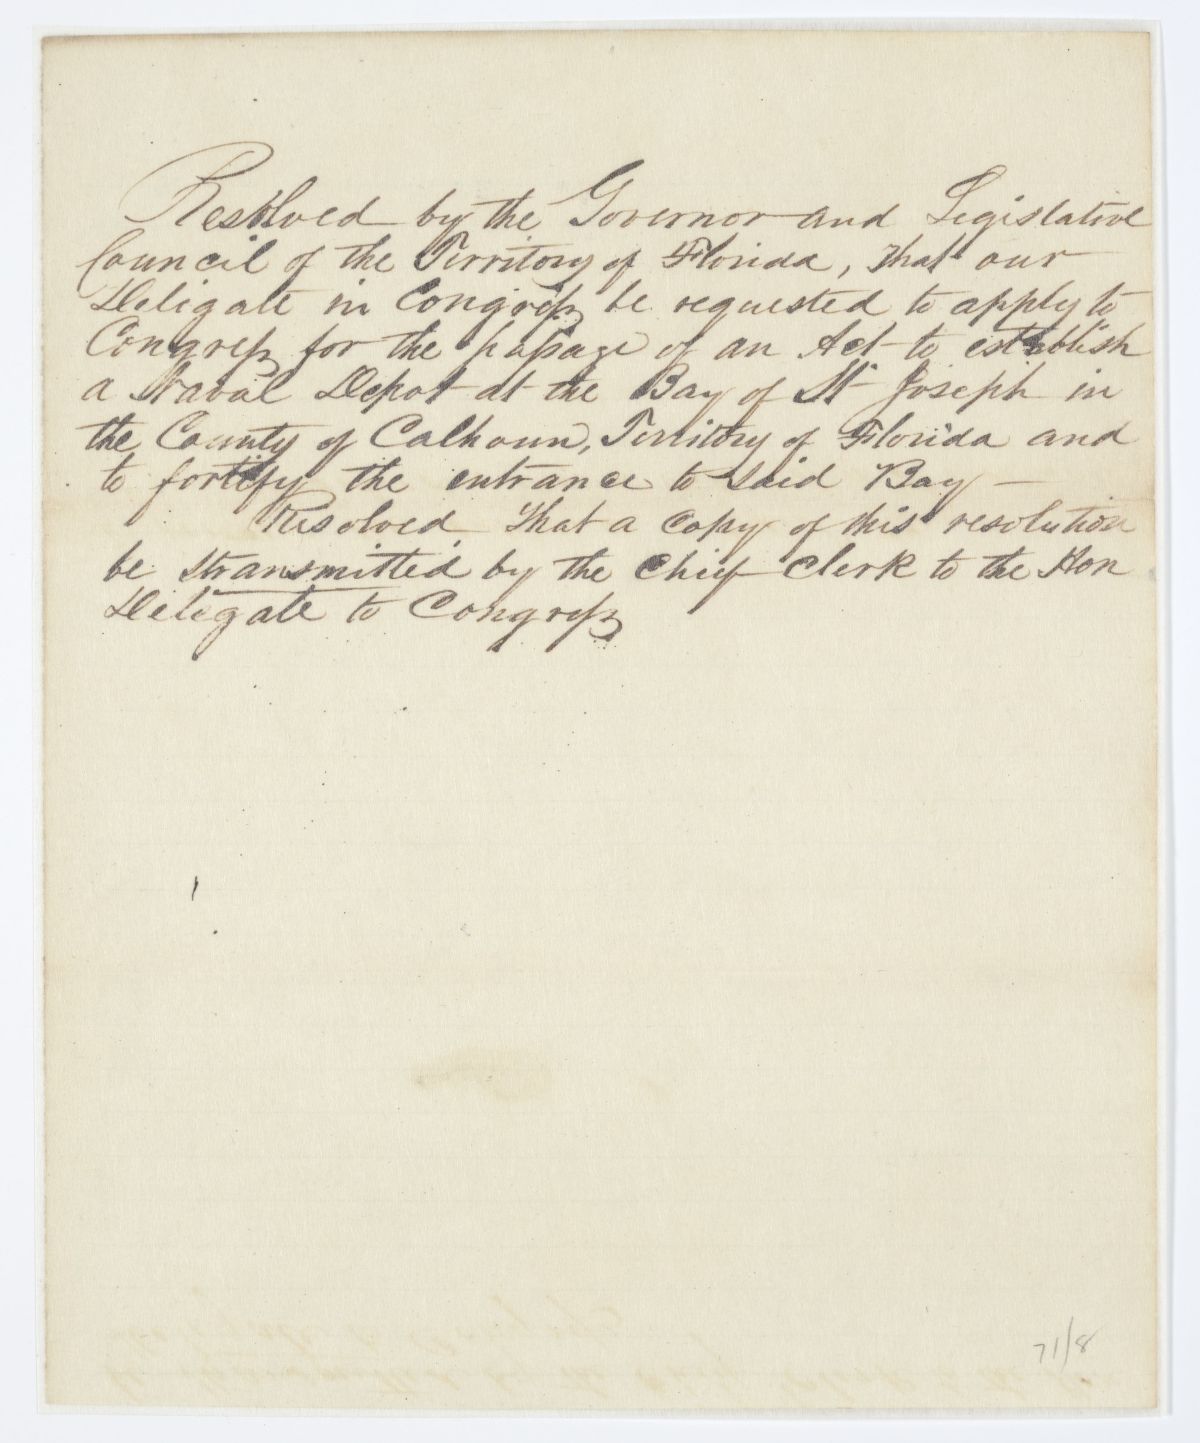 Resolved by the Governor and Legislative
Council of the Territory of Florida, That our
Deligate in Congress be requested to apply to
Congress for the passage of an Act to establish
a Naval Depot at the Bay of St Joseph in
the County of Calhoun, Territory of Florida and
to fortify the entrance to said Bay —
Resolved That a Copy of this resolution
be transmitted by the Chief Clerk to the Hon
Deligate to Congress
71/8